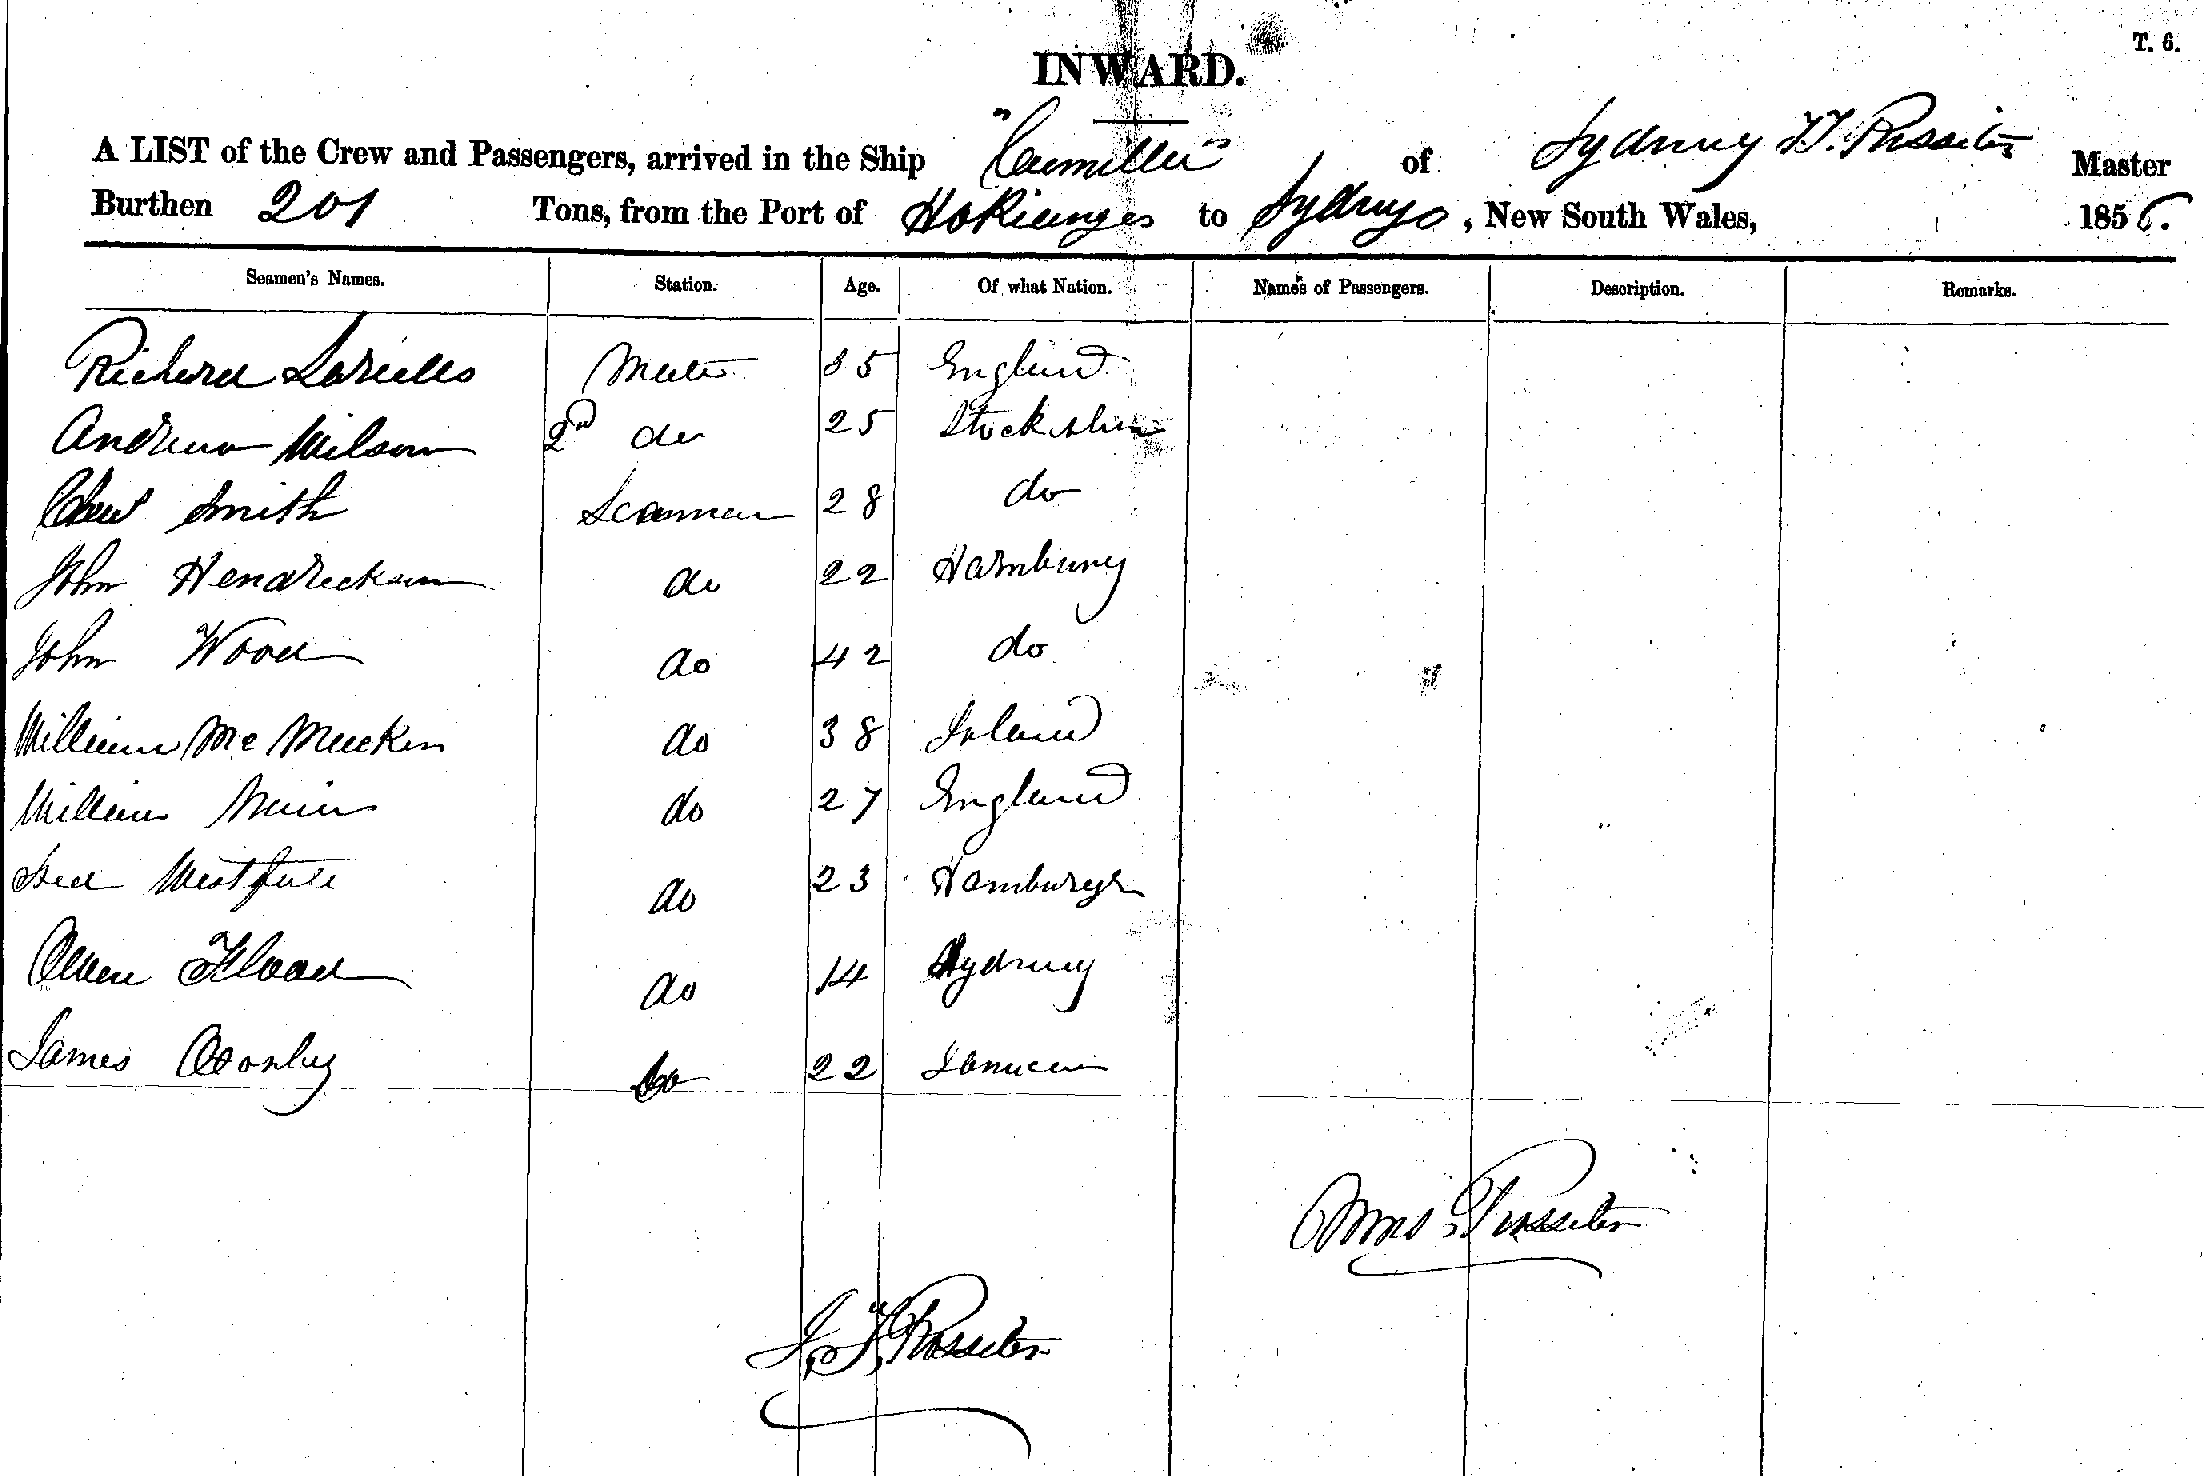 T. 6.
INWARD.
A LIST of the Crew and Passengers, arrived in the Ship "Camilla" of Sydney T. Rossiter Master
Burthen 201 Tons, from the Port of Hokianga to Sydney, New South Wales, 1856.
Seamen's Names. Station. Age. Of what Nation. Names of Passengers. Description. Remarks.
Richard Mate 35 England
Andrew Wilson 2nd do 25
Smith Seaman 28 do
John Hendrickson do 22 Hamburg
John Wood do 42 do
William Mc Mucken do 38 Ireland
William do 27 England
Fred do 23 Hamburgh
Owen Flood do 14 Sydney
James Conley do 22
Rossiter
Rossiter